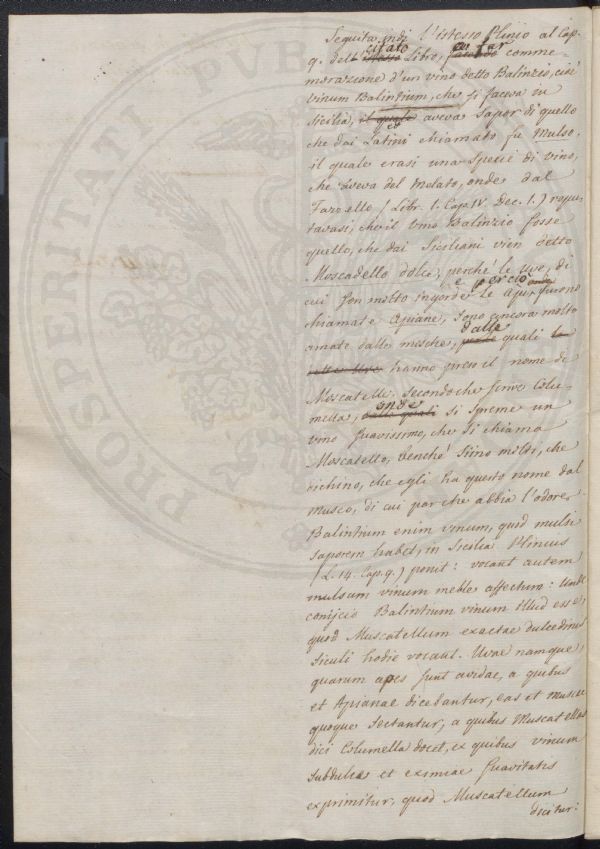 Seguita indi l'istesso Plinio al Cap.
9. dell' istesso citato Libro, facendo a far comme-
morazione d'un vino detto Balinzio, cioè
vinum Balintium, che si faceva in
Sicilia, il quale e aveva sapor di quello
che dai Latini chiamato fu Mulso,
il quale erasi una specie di vino,
che aveva del Melato, onde dal
Fazello (Libr. 1. Cap. IV. Dec. 1.) repu-
tavasi, che il vino Balinzio fosse
quello, che dai Siciliani vien detto
Moscadello dolce, perché le uve, di
cui son molto ingorde le Api, e perciò furono
chiamate Apiane, sono ancora molto
amate dalle mosche, dalle quali
hanno preso il nome di
Moscatelli, secondoche scrive Colu-
mella, dalle quali onde si spreme un
vino suavissimo, che si chiama
Moscatello, benché siino molti, che
dichino, che egli ha questo nome dal
musco, di cui par che abbia l'odore.
Balintium enim vinum, quod mulsi
saporem habet, in Sicilia Plinius
(L. 14. Cap. 9.) ponit: vocant autem
mulsum vinum melle affectum: Unde
conijcio Balintium vinum illud esse,
quod Muscatellum exactae dulcedinis
Siculi hodie vocant. Uvae namque,
quarum apes sunt avidae, a quibus
et Apianae dicebantur, eas et muscae
quoque sectantur, a quibus Muscatellas
dici Columella docet, ex quibus vinum
subdulce et eximiae suavitatis
exprimitur, quod Muscatellum
dicitur:
PROSPERITATI PUB